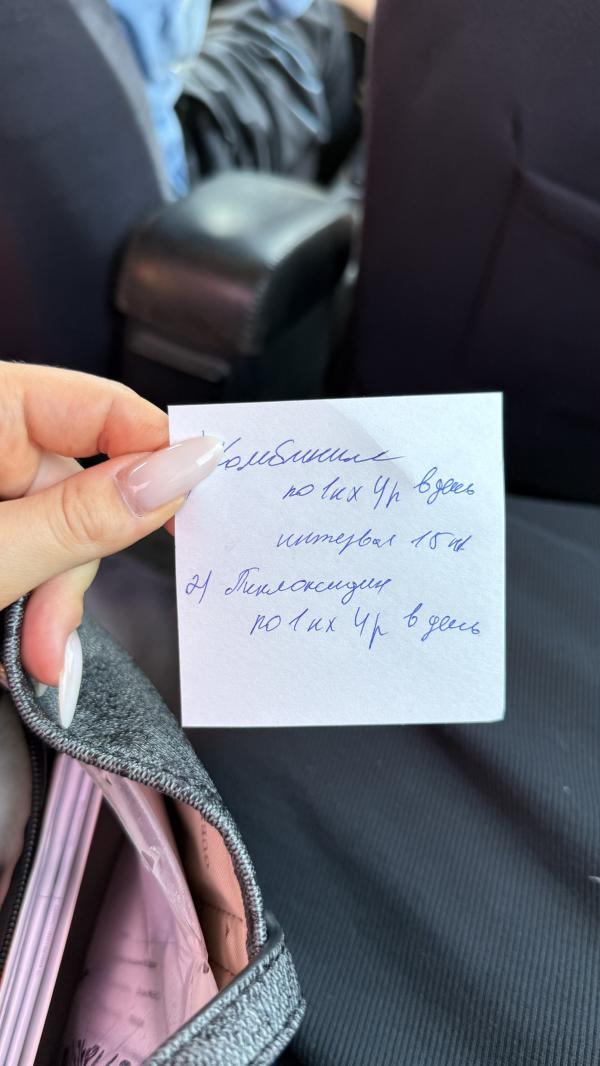 Комбинил
по 1 кх 4 р в день
интервал 15 м
2) Пиклоксидин
по 1 кх 4 р в день